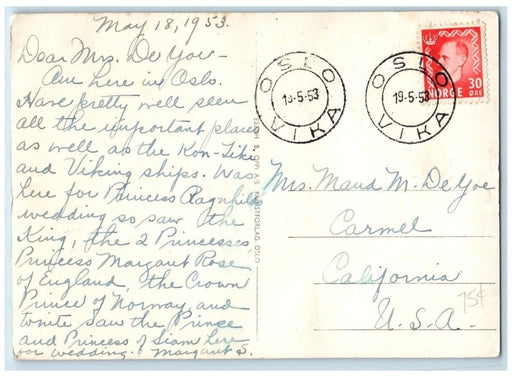 May 18, 1953.
Dear Mrs. De Yoe -
Am here in Oslo.
Have pretty well seen
all the important places
as well as the Kon-Tiki
and Viking ships. Was
here for Princess Ragnhild's
wedding so saw the
King, the 2 Princesses,
Princess Margaret Rose
of England, the Crown
Prince of Norway and
tonite saw the Prince
and Princess of Siam here
for wedding. Margaret S.
OSLO
19-5-53
VIKA
OSLO
19-5-53
VIKA
30
NORGE ØRE
KUNSTFORLAG, OSLO
Mrs. Maud M. De Yoe
Carmel
California
U.S.A.
75¢